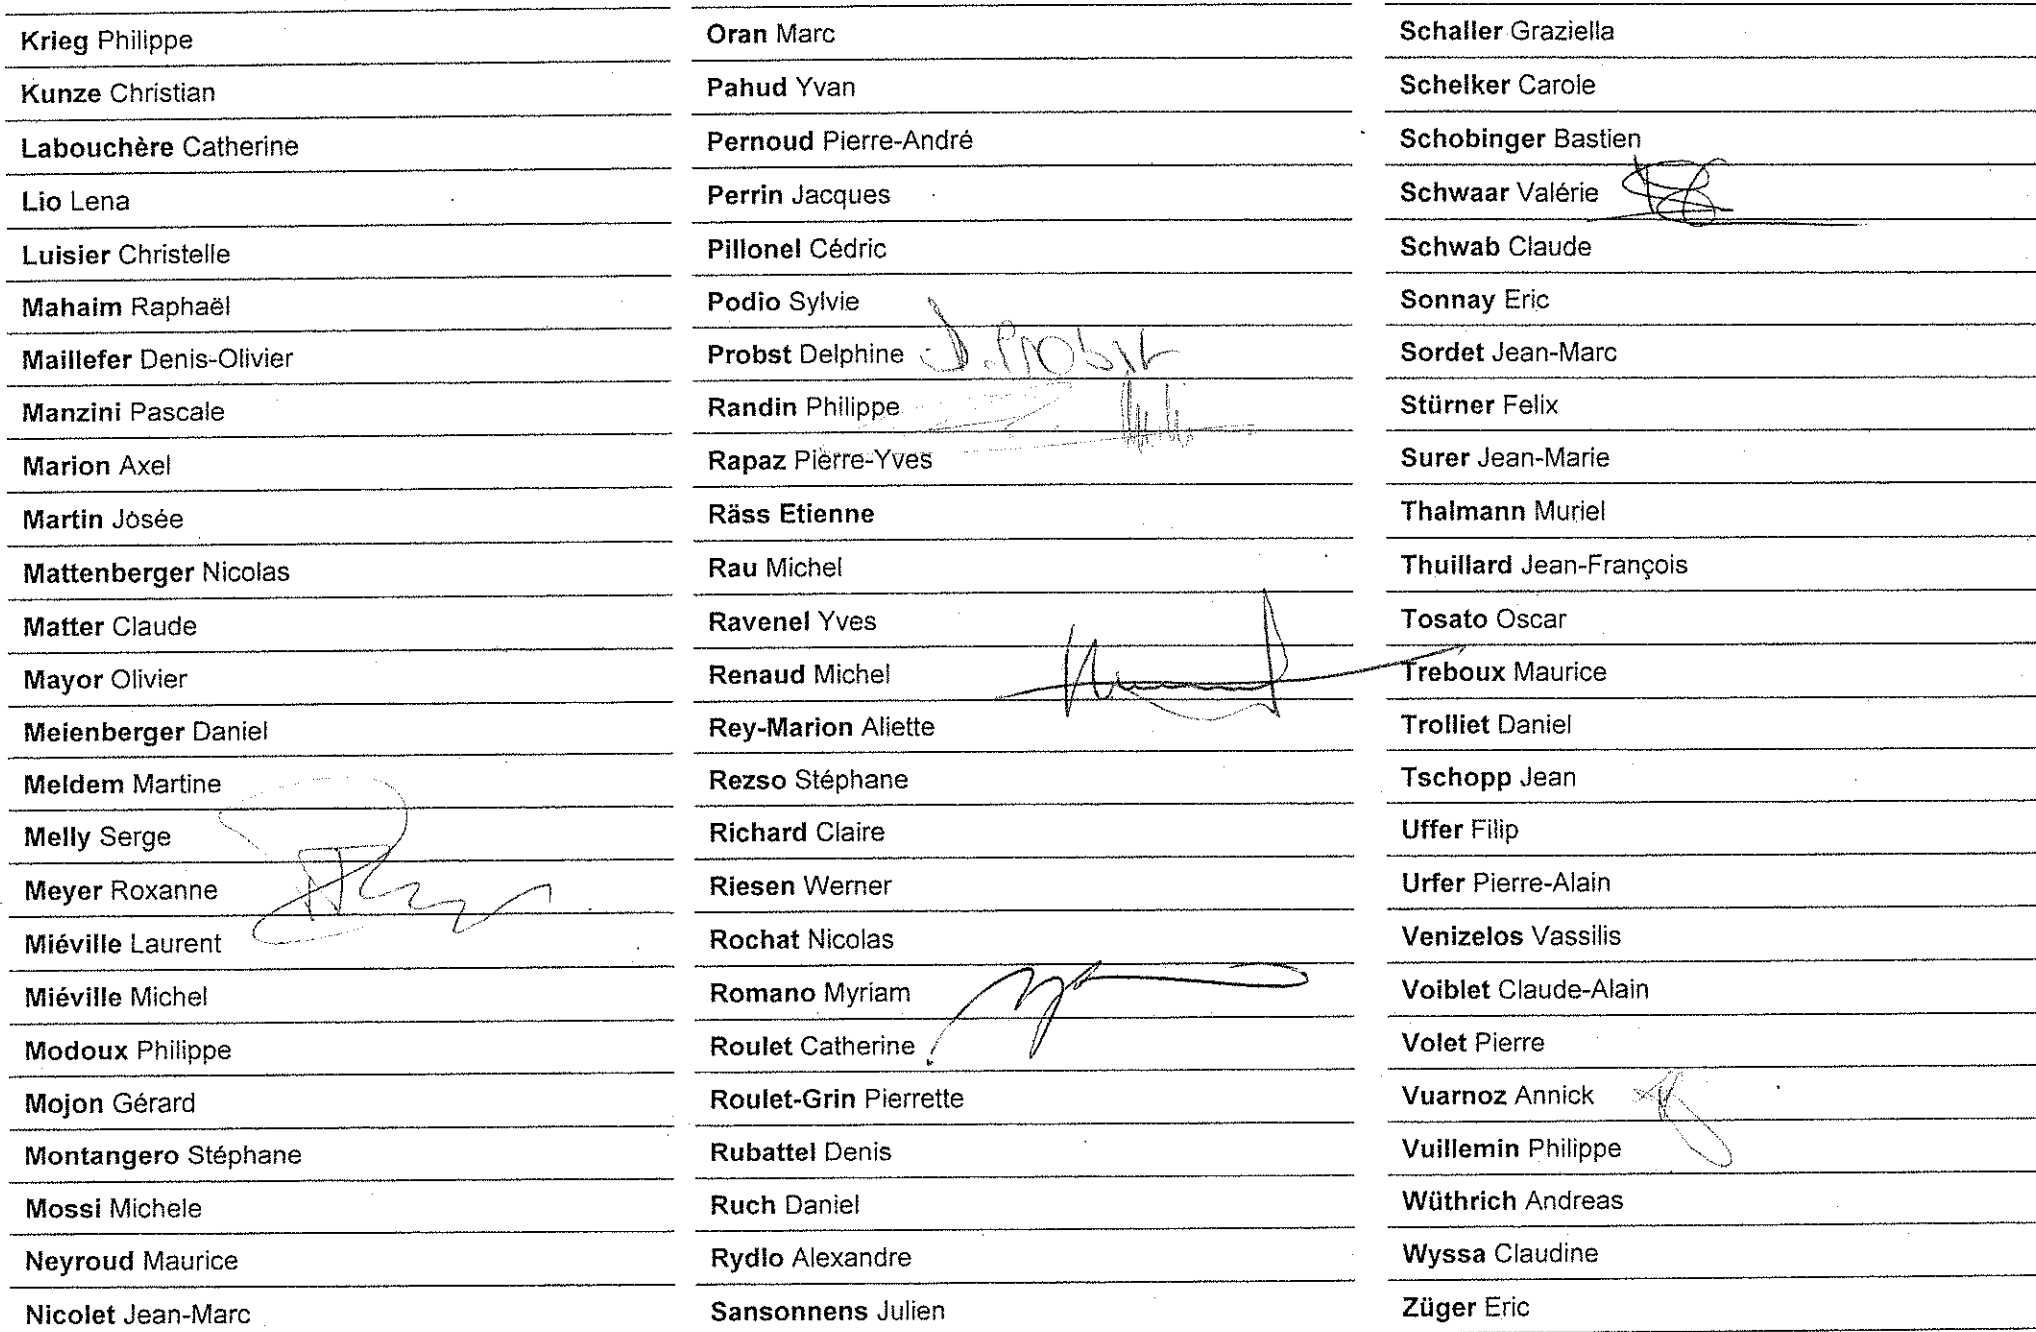 Krieg Philippe
Kunze Christian
Labouchère Catherine
Lio Lena
Luisier Christelle
Mahaim Raphaël
Maillefer Denis-Olivier
Manzini Pascale
Marion Axel
Martin Josée
Mattenberger Nicolas
Matter Claude
Mayor Olivier
Meienberger Daniel
Meldem Martine
Melly Serge
Meyer Roxanne
Miéville Laurent
Miéville Michel
Modoux Philippe
Mojon Gérard
Montangero Stéphane
Mossi Michele
Neyroud Maurice
Nicolet Jean-Marc
Oran Marc
Pahud Yvan
Pernoud Pierre-André
Perrin Jacques
Pillonel Cédric
Podio Sylvie
Probst Delphine D. Probst
Randin Philippe
Rapaz Pierre-Yves
Räss Etienne
Rau Michel
Ravenel Yves
Renaud Michel
Rey-Marion Aliette
Rezso Stéphane
Richard Claire
Riesen Werner
Rochat Nicolas
Romano Myriam
Roulet Catherine
Roulet-Grin Pierrette
Rubattel Denis
Ruch Daniel
Rydlo Alexandre
Sansonnens Julien
Schaller Graziella
Schelker Carole
Schobinger Bastien
Schwaar Valérie
Schwab Claude
Sonnay Eric
Sordet Jean-Marc
Stürner Felix
Surer Jean-Marie
Thalmann Muriel
Thuillard Jean-François
Tosato Oscar
Treboux Maurice
Trolliet Daniel
Tschopp Jean
Uffer Filip
Urfer Pierre-Alain
Venizelos Vassilis
Voiblet Claude-Alain
Volet Pierre
Vuarnoz Annick
Vuillemin Philippe
Wüthrich Andreas
Wyssa Claudine
Züger Eric